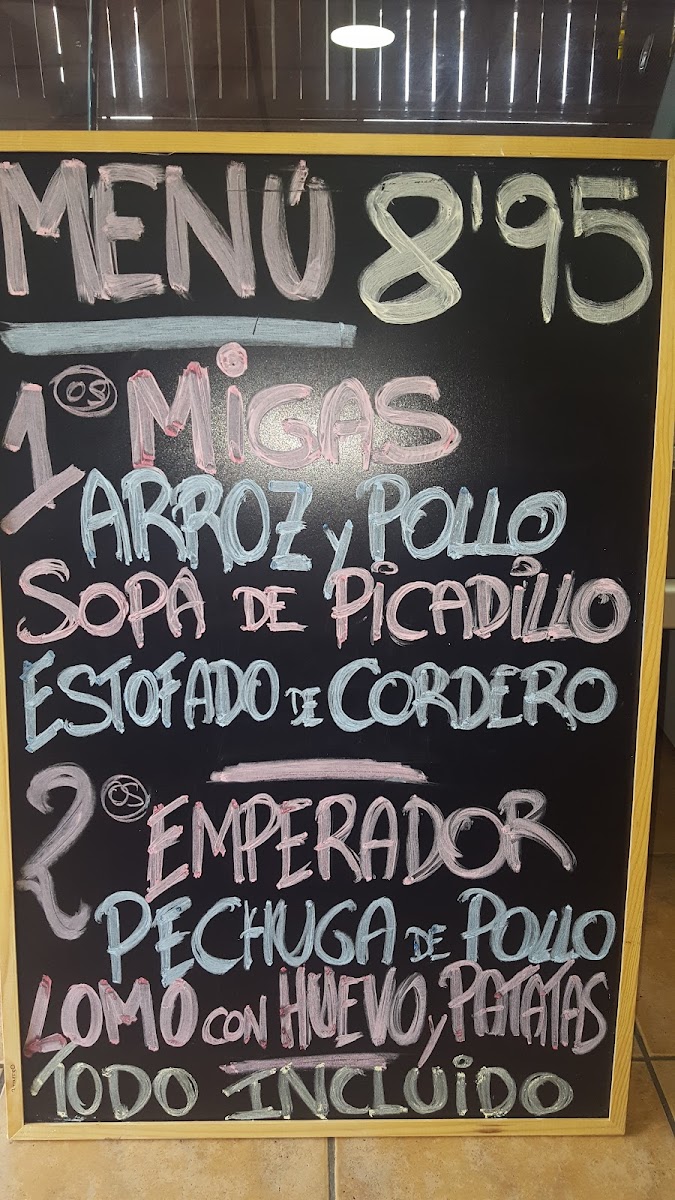 MENÚ 8'95
1os MiGAS
ARROZ y POLLO
SOPA DE PiCADiLLO
ESTOFADO DE CORDERO
2os EMPERADOR
PECHUGA DE POLLO
LOMO CON HUEVO y PATATAS
TODO INCLUiDO